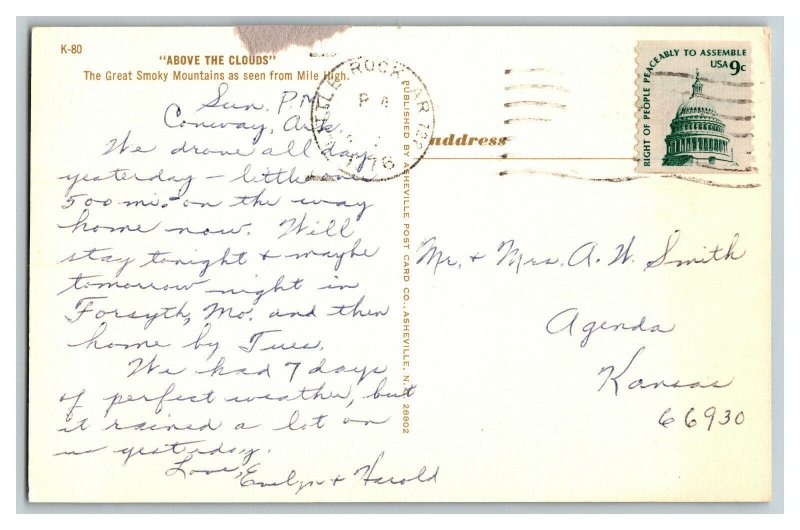 K-80
"ABOVE THE CLOUDS"
The Great Smoky Mountains as seen from Mile High.
Sun. P.M.
Conway, Ark.
We drove all day
yesterday - little over
500 mi. on the way
home now. Will
stay tonight + maybe
tomorrow night in
Forsyth, Mo. and then
home by Tues.
We had 7 days
of perfect weather, but
it rained a lot on
us yesterday.
Love, E
Evelyn + Harold
PUBLISHED BY ASHEVILLE POST CARD CO., ASHEVILLE, N.C. 28802
address
LITTLE ROCK, AR 722
1976
RIGHT OF PEOPLE PEACEABLY TO ASSEMBLE
USA 9c
Mr. + Mrs. A. W. Smith
Agenda
Kansas
66930